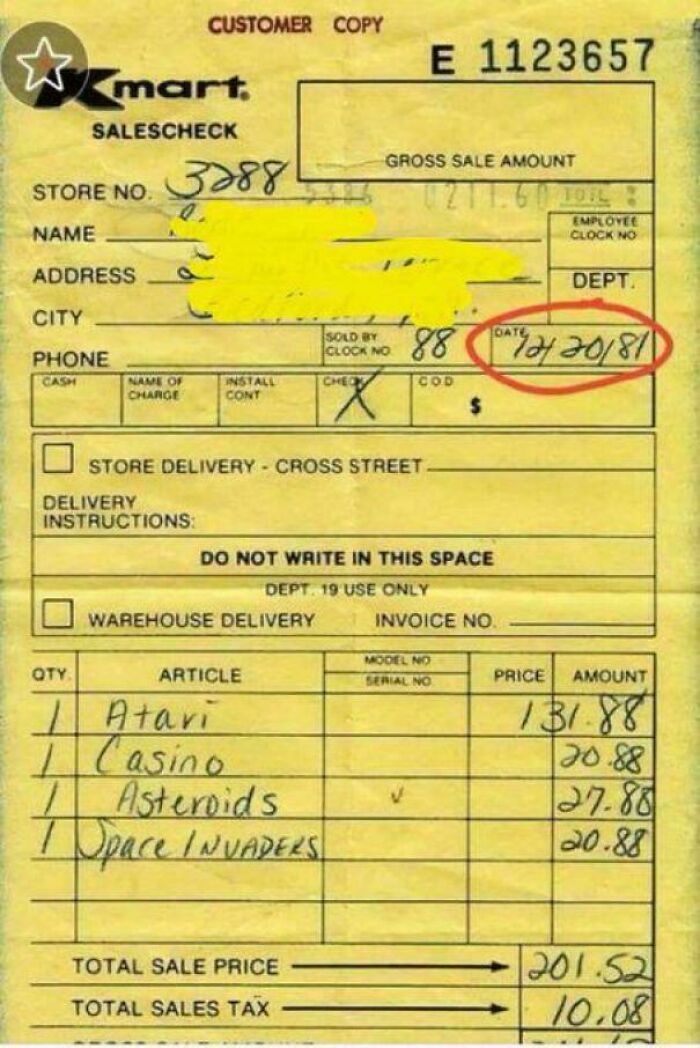 CUSTOMER COPY
E 1123657
Kmart®
SALESCHECK
GROSS SALE AMOUNT
STORE NO. 3288
5386 0211.60 TOTL
NAME
EMPLOYEE CLOCK NO
ADDRESS
DEPT.
CITY
PHONE
SOLD BY CLOCK NO. 88
DATE 12/20/81
CASH NAME OF CHARGE INSTALL CONT CHECK X C O D $
STORE DELIVERY - CROSS STREET
DELIVERY
INSTRUCTIONS:
DO NOT WRITE IN THIS SPACE
DEPT. 19 USE ONLY
WAREHOUSE DELIVERY INVOICE NO.
QTY. ARTICLE MODEL NO SERIAL NO. PRICE AMOUNT
1 Atari 131.88
1 Casino 20.88
1 Asteroids 27.88
1 Space INVADERS 20.88
TOTAL SALE PRICE 201.52
TOTAL SALES TAX 10.08